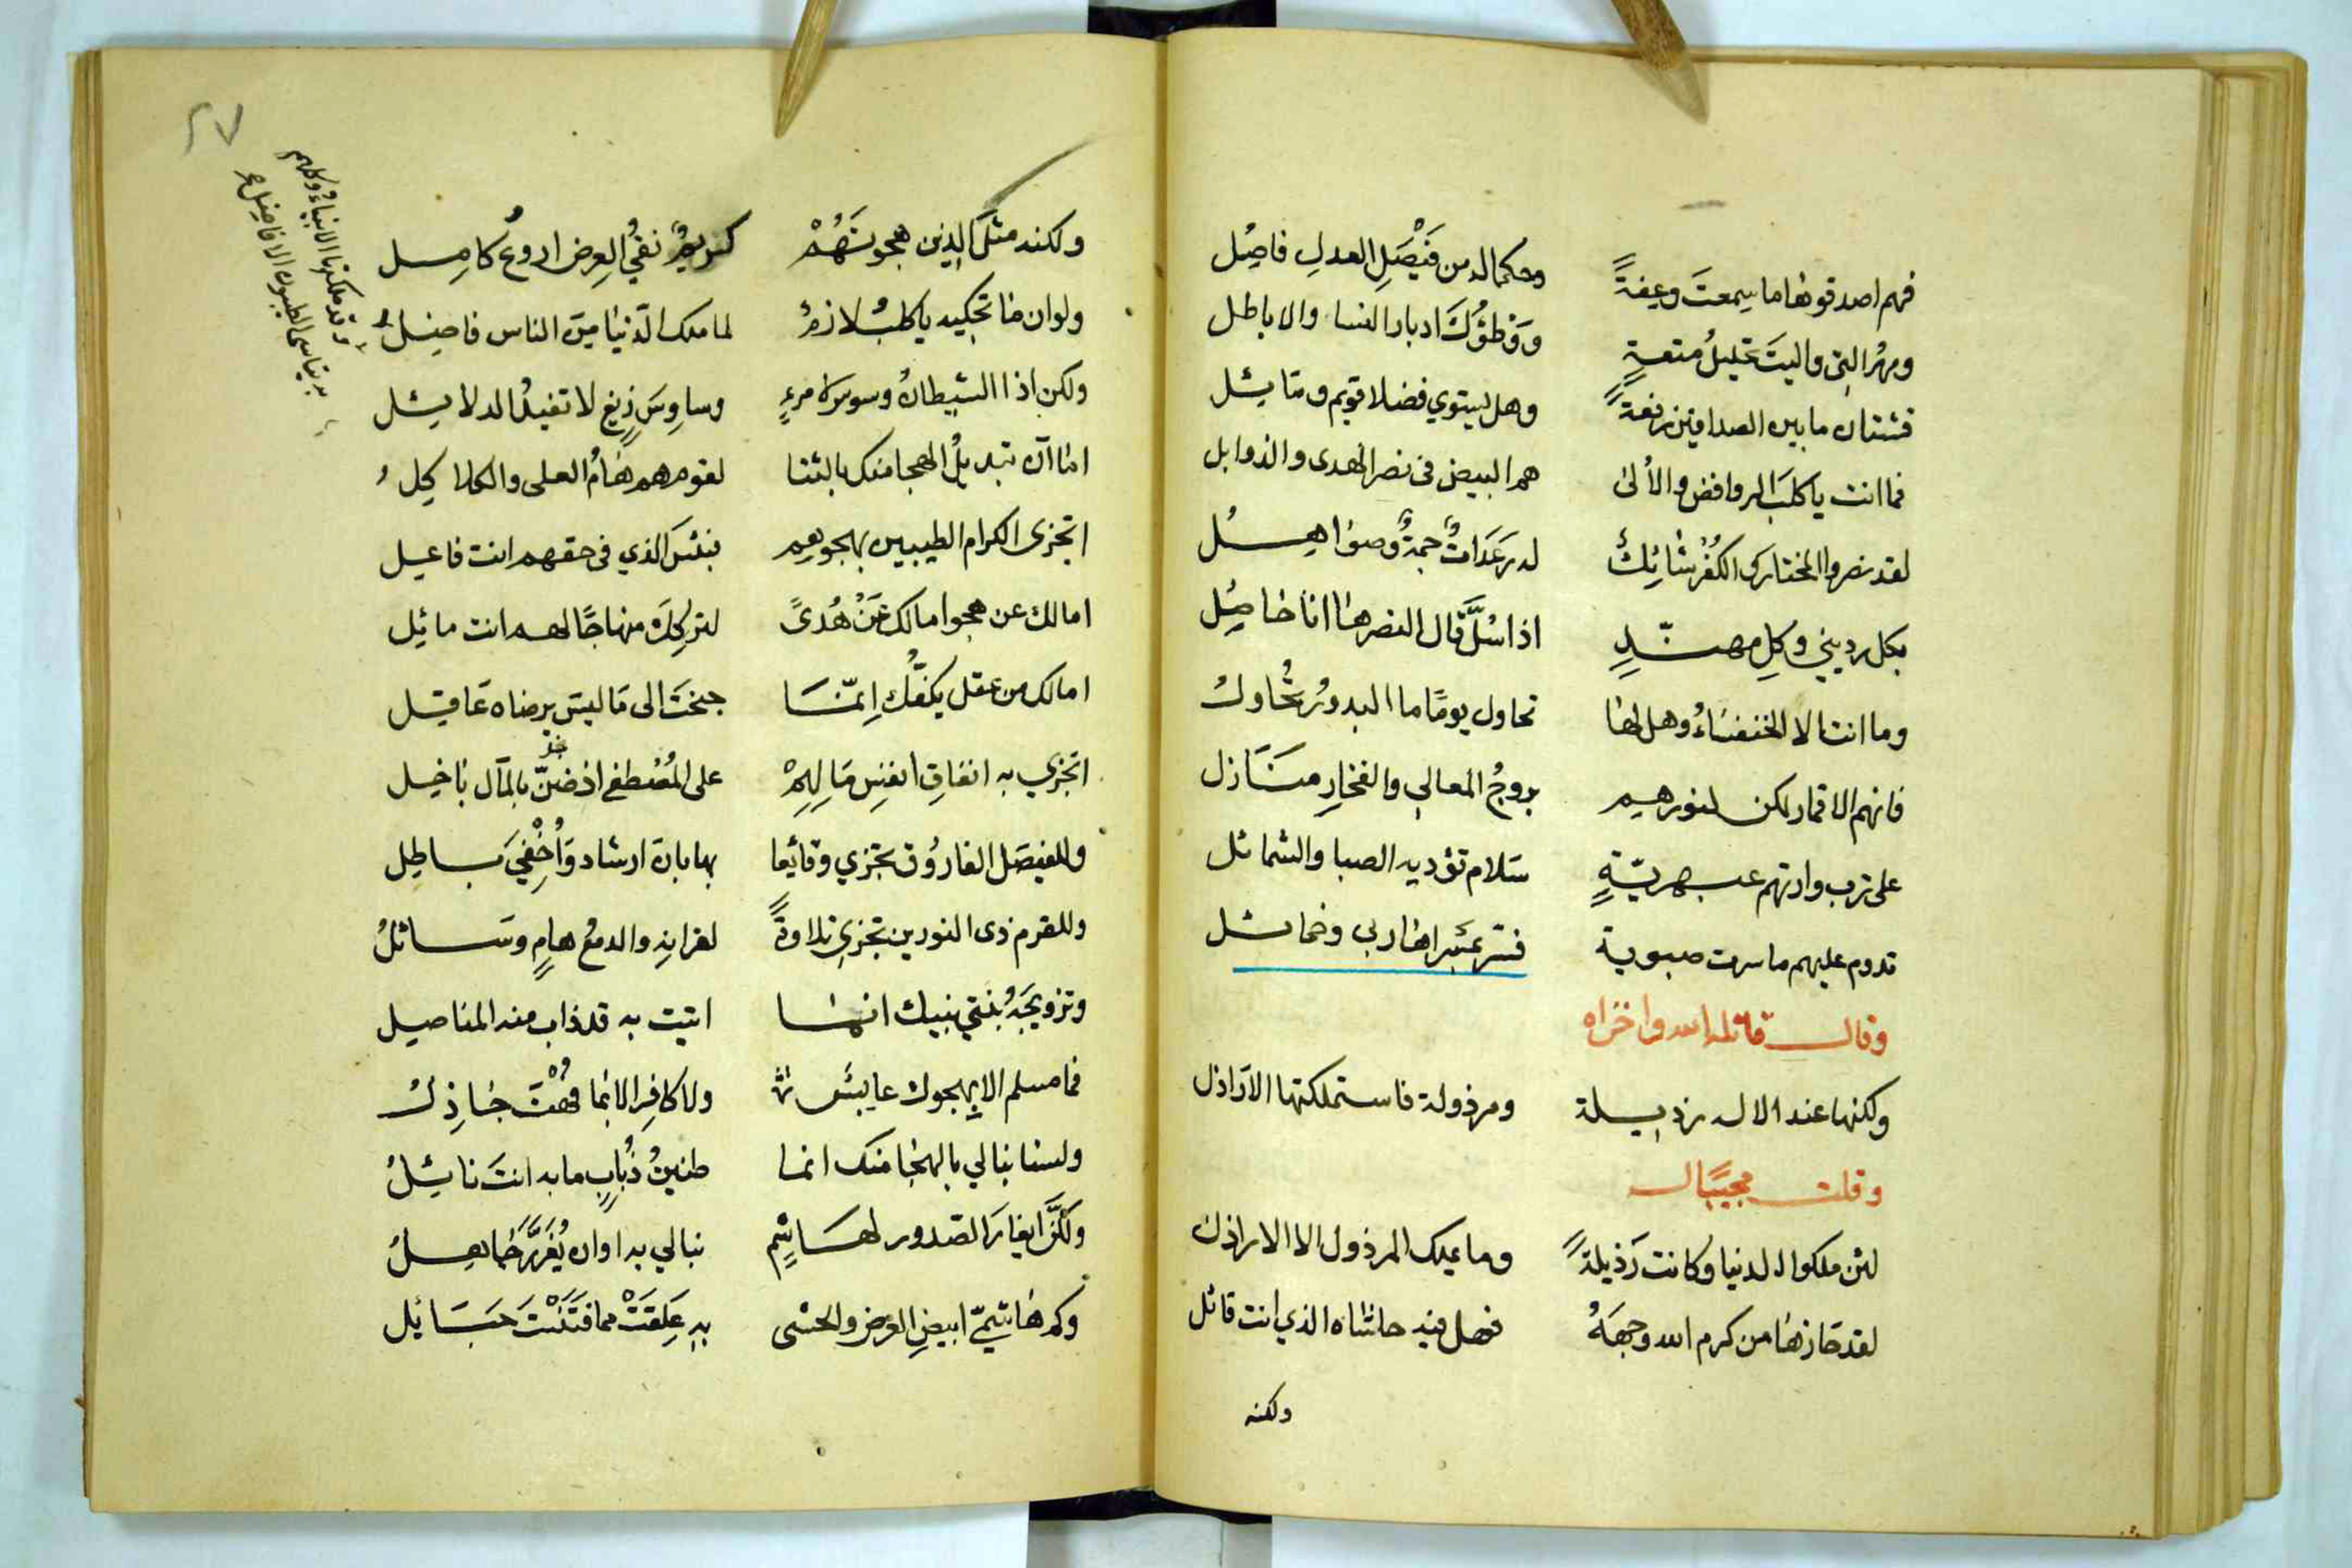 فهم اصدقوها ما سمعت وعفةً وحكما له من فيصل العدل فاصل
ومهر التي واليت تحليل متعةٍ ووطؤك ادبار النسا والاباطل
فشتان ما بين الصداقين رفعةً وهل يستوي فضلا قويم ومائل
فما انت يا كلب الروافض والألى هم البيض في نصر الهدى والذوابل
لقد نصروا المختار كي الكفر شانك له رعدات جمة وصواهل
بكل رديني وكل مهندٍ اذا سُلَّ قال النصر ها انا حاصل
وما انت الا الخنفساء وهل لها تحاول يومًا ما البدور تحاول
فانهم الاقمار لكن لنورهم بروج المعالي والفخار منازل
على ترب وارتهم عبهريّةٍ سلام تؤديه الصبا والشمائل
تدوم عليهم ما سرت صبوية فسر عبيراها ربى وخمائل
وقال قاتله الله واخزاه
ولكنها عند الال رذيلة ومرذولة فاستملكتها الاراذل
وقلت مجيبًا له
لئن ملكوا الدنيا وكانت رذيلةً وما يملك المرذول الا الاراذل
لقد حازها من كرم الله وجهه فهل فيه حاشاه الذي انت قائل
ولكنه
٢٧
وقد ملكتها الانبياء وكلهم
بريئا سما الطيبون الافاضل
ولكنه مثل الذين هجوتهم كريم نقي العرض اروع كامل
ولو ان ما تحكيه يا كلب لازم لما ملك الدنيا من الناس فاضل
ولكن اذا الشيطان وسوس لامرءٍ وساوس زيغ لا تفيد الدلايل
اما آن تبديل الهجا منك بالثنا لقوم هم هام العلى والكلاكل
اتجزى الكرام الطيبين بهجوهم فبئس الذي في حقهم انت فاعل
اما لك عن هجو امالك عن هدىً لتركك منهاجًا لهم انت مائل
امالك من عقل يكفك إنما جنحت الى ما ليس يرضاه عاقل
اتجزي به انفاق انفس مالهم على المصطفى اذ ضنّ بالمآل باخل
وللفيصل الفاروق تجزي وقائعا بها بان ارشاد وأخفي باطل
وللقرم ذى النورين تجزي تلاوةً لقرانه والدمع هامٍ وسائل
وتزويجه بنتي نبيك انها اتيت به قد ذاب منه المناصل
فما مسلم الا يهجوك عابس ولا كافر الا بما فهت جاذل
ولسنا نبالي بالهجا منك انما طنين ذباب ما به انت نائل
ولكنَّ ايغار الصدور لهاشم نبالي به اوان يغرر خامل
وكم هاشميّ ابيض العرض والحشى به علقت مما فتنت حبائل